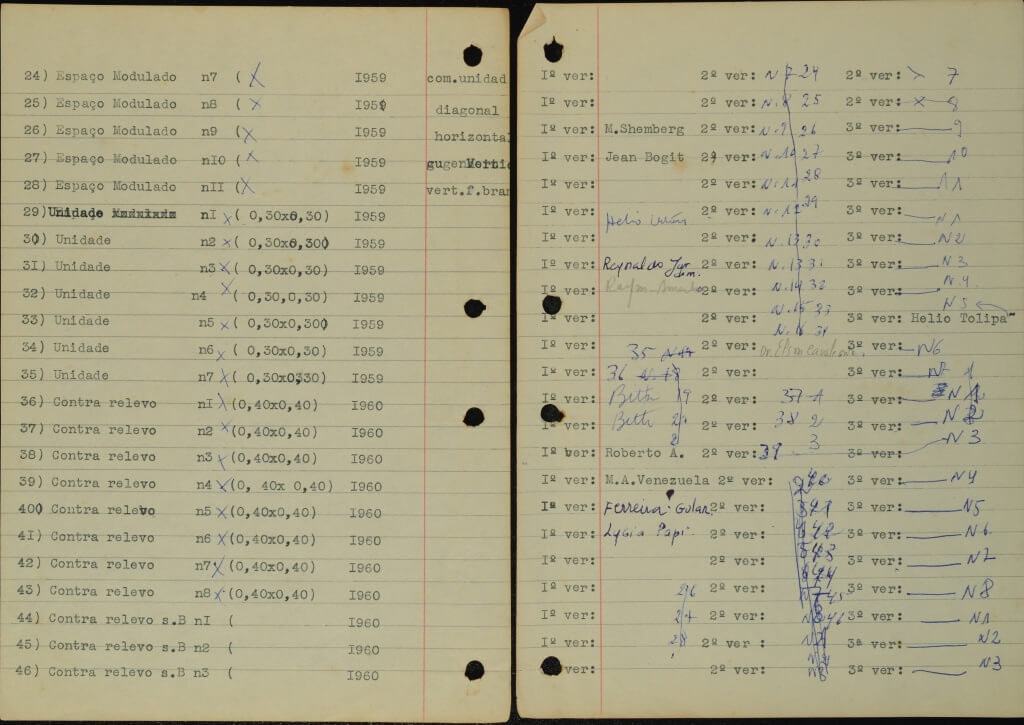 24) Espaço Modulado n7 ( X I959 com.unidad
25) Espaço Modulado n8 ( X I959 diagonal
26) Espaço Modulado n9 ( X I959 horizontal
27) Espaço Modulado nI0 ( X I959
28) Espaço Modulado nII ( X I959 vert.f.bran
29) Unidade nI X ( 0,30x0,30) I959
30) Unidade n2 X ( 0,30x0,30) I959
3I) Unidade n3 X ( 0,30x0,30) I959
32) Unidade n4 X ( 0,30,0,30) I959
33) Unidade n5 X ( 0,30x0,30) I959
34) Unidade n6 X ( 0,30x0,30) I959
35) Unidade n7 X ( 0,30x0330) I959
36) Contra relevo nI X (0,40x0,40) I960
37) Contra relevo n2 X (0,40x0,40) I960
38) Contra relevo n3 X (0,40x0,40) I960
39) Contra relevo n4 X (0, 40x 0,40) I960
40) Contra relevo n5 X (0,40x0,40) I960
4I) Contra relevo n6 X (0,40x0,40) I960
42) Contra relevo n7 X (0,40x0,40) I960
43) Contra relevo n8 X (0,40x0,40) I960
44) Contra relevo s.B nI ( I960
45) Contra relevo s.B n2 ( I960
46) Contra relevo s.B n3 ( I960
Iº ver: 2º ver: N 7 24 2º ver: X 7
Iº ver: 2º ver: N. 8 25 2º ver: X 8
Iº ver: M.Shemberg 2º ver: N. 9 26 3º ver: 9
Iº ver: Jean Bogit 2º ver: N. 10 27 3º ver: 10
Iº ver: 2º ver: N. 11 28 3º ver: 11
Iº ver: Helio 2º ver: N. 12 29 3º ver: N1
Iº ver: 2º ver: N. 13 30 3º ver: N2
Iº ver: Reynaldo Jardim. 2º ver: N. 13 31 3º ver: N.3
Iº ver: 2º ver: N. 14 32 3º ver: N.4
Iº ver: 2º ver: N. 15 33 3º ver: Helio Tolipa N5
N. 16 34
Iº ver: 35 2º ver: 3º ver: N6
Iº ver: 36 2º ver: 3º ver:
Iº ver: 19 2º ver: 37 1 3º ver: N1
Iº ver: 2º ver: 38 2 3º ver: N2
Iº ver: Roberto A. 2º ver: 39 3 3º ver: N3
Iº ver: M.A.Venezuela 2º ver: 3º ver: N4
Iº ver: Ferreira Gular 2º ver: 3º ver: N5
Iº ver: Lygia Papi 2º ver: 3º ver: N6
Iº ver: 2º ver: 3º ver: N7
Iº ver: 26 2º ver: 3º ver: N8
Iº ver: 27 2º ver: 3º ver: N1
Iº ver: 28 2º ver: 3º ver: N2
ver: 2º ver: 3º ver: N3